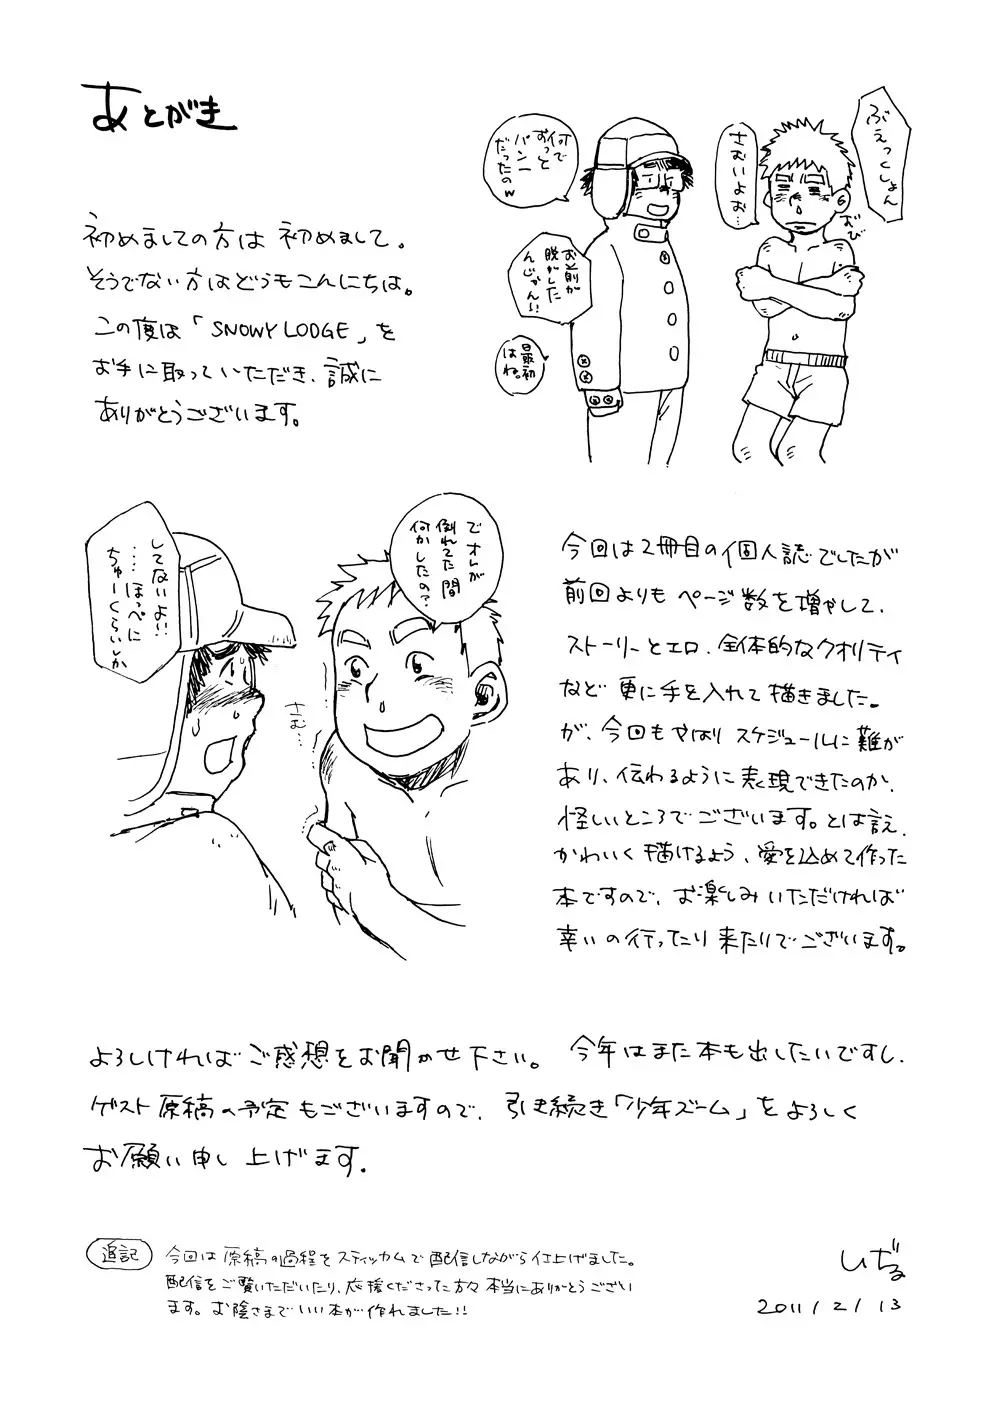 あとがき
初めましての方は初めまして。
そうでない方はどうもこんにちは。
この度は「SNOWY LODGE」を
お手に取っていただき、誠に
ありがとうございます。
ぶえっくしょん
さむいよお…
おび
何で
ずっと
パンー
だったのw
お前が
脱がした
んじゃん!!
最初
はね。
でオレが
倒れてた間
何かしたの?
してないよ!!
……ほっぺに
ちゅーくらいしか
さむ…
今回は2冊目の個人誌でしたが
前回よりもページ数を増やして、
ストーリーとエロ、全体的なクオリティ
など更に手を入れて描きました。
が、今回もやはりスケジュールに難が
あり、伝わるように表現できたのか、
怪しいところでございます。とは言え、
かわいく描けるよう、愛を込めて作った
本ですので、お楽しみいただければ
幸いの行ったり来たりでございます。
よろしければご感想をお聞かせ下さい。今年はまた本も出したいですし、
ゲスト原稿の予定もございますので、引き続き「少年ズーム」をよろしく
お願い申し上げます。
追記 今回は原稿の過程をスティッカムで配信しながら仕上げました。
配信をご覧いただいたり、応援くださった方々本当にありがとうござい
ます。お陰さまでいい本が作れました!!
いぢる
2011/2/13